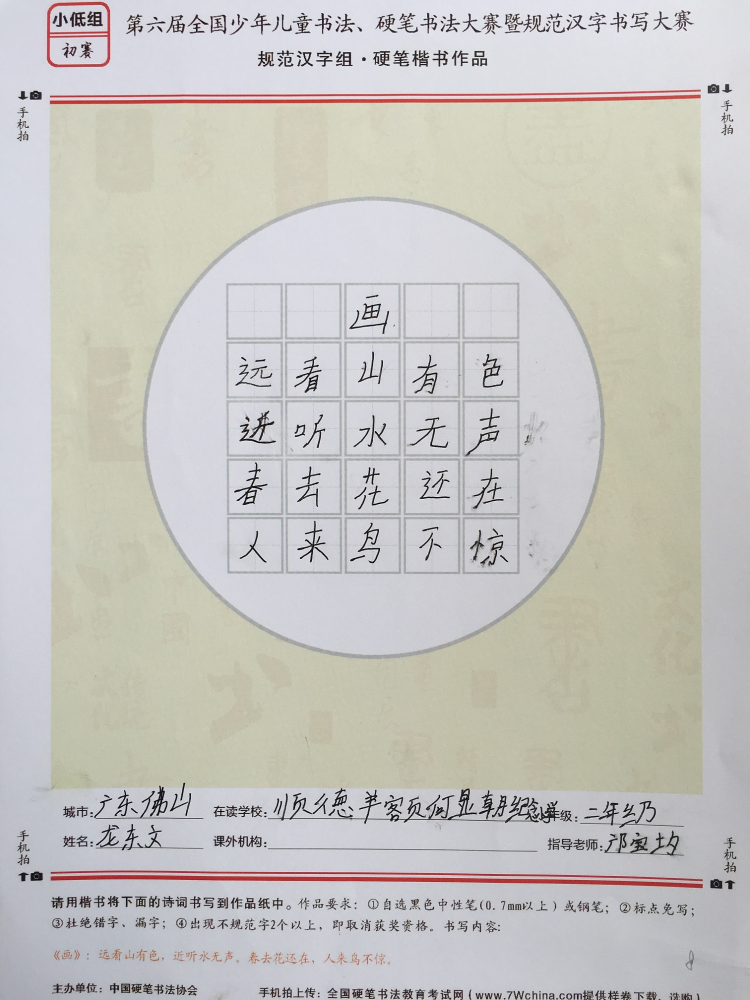 小低组
初赛
第六届全国少年儿童书法、硬笔书法大赛暨规范汉字书写大赛
规范汉字组·硬笔楷书作品
手机拍
手机拍
画
远看山有色
进听水无声
春去花还在
人来鸟不惊
城市:广东佛山 在读学校:顺德羊客页何显朝纪念学 年级:二年级
姓名:龙东文 课外机构: 指导老师:邝宝均
手机拍
手机拍
请用楷书将下面的诗词书写到作品纸中。作品要求:①自选黑色中性笔(0.7mm以上)或钢笔;②标点免写;
③杜绝错字、漏字;④出现不规范字2个以上,即取消获奖资格。书写内容:
《画》:远看山有色,近听水无声。春去花还在,人来鸟不惊。
8
主办单位:中国硬笔书法协会 手机拍上传:全国硬笔书法教育考试网(www.7Wchina.com提供样卷下载、选购)